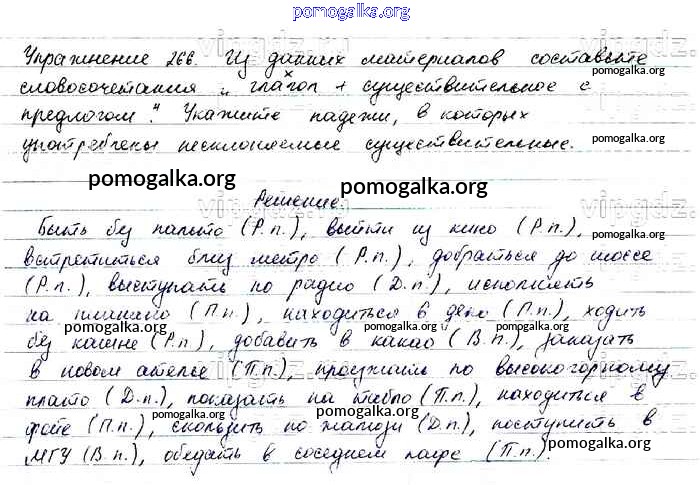 pomogalka.org
Упражнение 266. Из данных материалов составьте
pomogalka.org
словосочетания „глагол + существительное с
pomogalka.org
предлогом". Укажите падежи, в которых
pomogalka.org
употреблены несклоняемые существительные.
pomogalka.org pomogalka.org
Решение.
Быть без пальто (Р.п.), выйти из кино (Р.п.),
pomogalka.org
встретиться близ метро (Р.п.), добраться до шоссе
(Р.п.), выступать по радио (Д.п.), исполнять
pomogalka.org
на пианино (П.п.), находиться в депо (П.п.), ходить
pomogalka.org pomogalka.org pomogalka.org
без кашне (Р.п.), добавить в какао (В.п.), заказать
в новом ателье (П.п.), проезжать по высокогорному
pomogalka.org
плато (Д.п.), показать на табло (П.п.), находиться в
pomogalka.org pomogalka.org
фойе (П.п.), скользить по жалюзи (Д.п.), поступить в
МГУ (В.п.), обедать в соседнем кафе (П.п.).
pomogalka.org